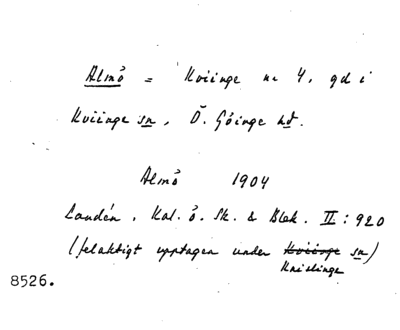 Almö = Kviinge nr 4, gd i
Kviinge sn, Ö. Göinge hd.
Almö 1904
Landén, Kal. ö. Sk. & Blek. II: 920
(felaktigt upptagen under Kviinge sn)
Knislinge
8526.